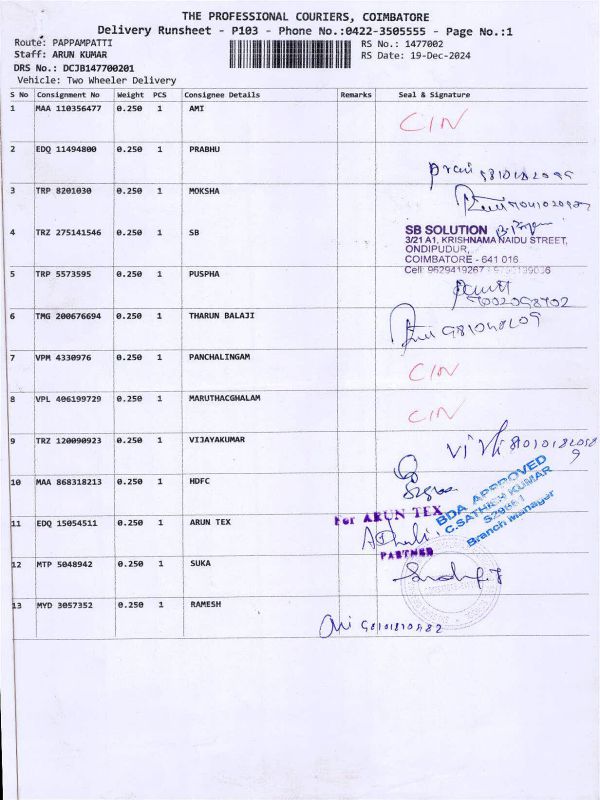 THE PROFESSIONAL COURIERS, COIMBATORE
Delivery Runsheet - P103 - Phone No.:0422-3505555 - Page No.:1
Route: PAPPAMPATTI
Staff: ARUN KUMAR
DRS No.: DCJB147700201
Vehicle: Two Wheeler Delivery
RS No.: 1477002
RS Date: 19-Dec-2024
S No Consignment No Weight PCS Consignee Details Remarks Seal & Signature
1 MAA 110356477 0.250 1 AMI CIN
2 EDQ 11494800 0.250 1 PRABHU
3 TRP 8201030 0.250 1 MOKSHA
4 TRZ 275141546 0.250 1 SB
SB SOLUTION
3/21 A1, KRISHNAMA NAIDU STREET,
ONDIPUDUR,
COIMBATORE - 641 016
Cell: 9629419267
5 TRP 5573595 0.250 1 PUSPHA
6 TMG 200676694 0.250 1 THARUN BALAJI
7 VPM 4330976 0.250 1 PANCHALINGAM CIN
8 VPL 406199729 0.250 1 MARUTHACGHALAM CIN
9 TRZ 120090923 0.250 1 VIJAYAKUMAR
10 MAA 868318213 0.250 1 HDFC
BDA APPROVED
C.SATHISH KUMAR
Branch Manager
11 EDQ 15054511 0.250 1 ARUN TEX
For ARUN TEX
PARTNER
12 MTP 5048942 0.250 1 SUKA
13 MYD 3057352 0.250 1 RAMESH